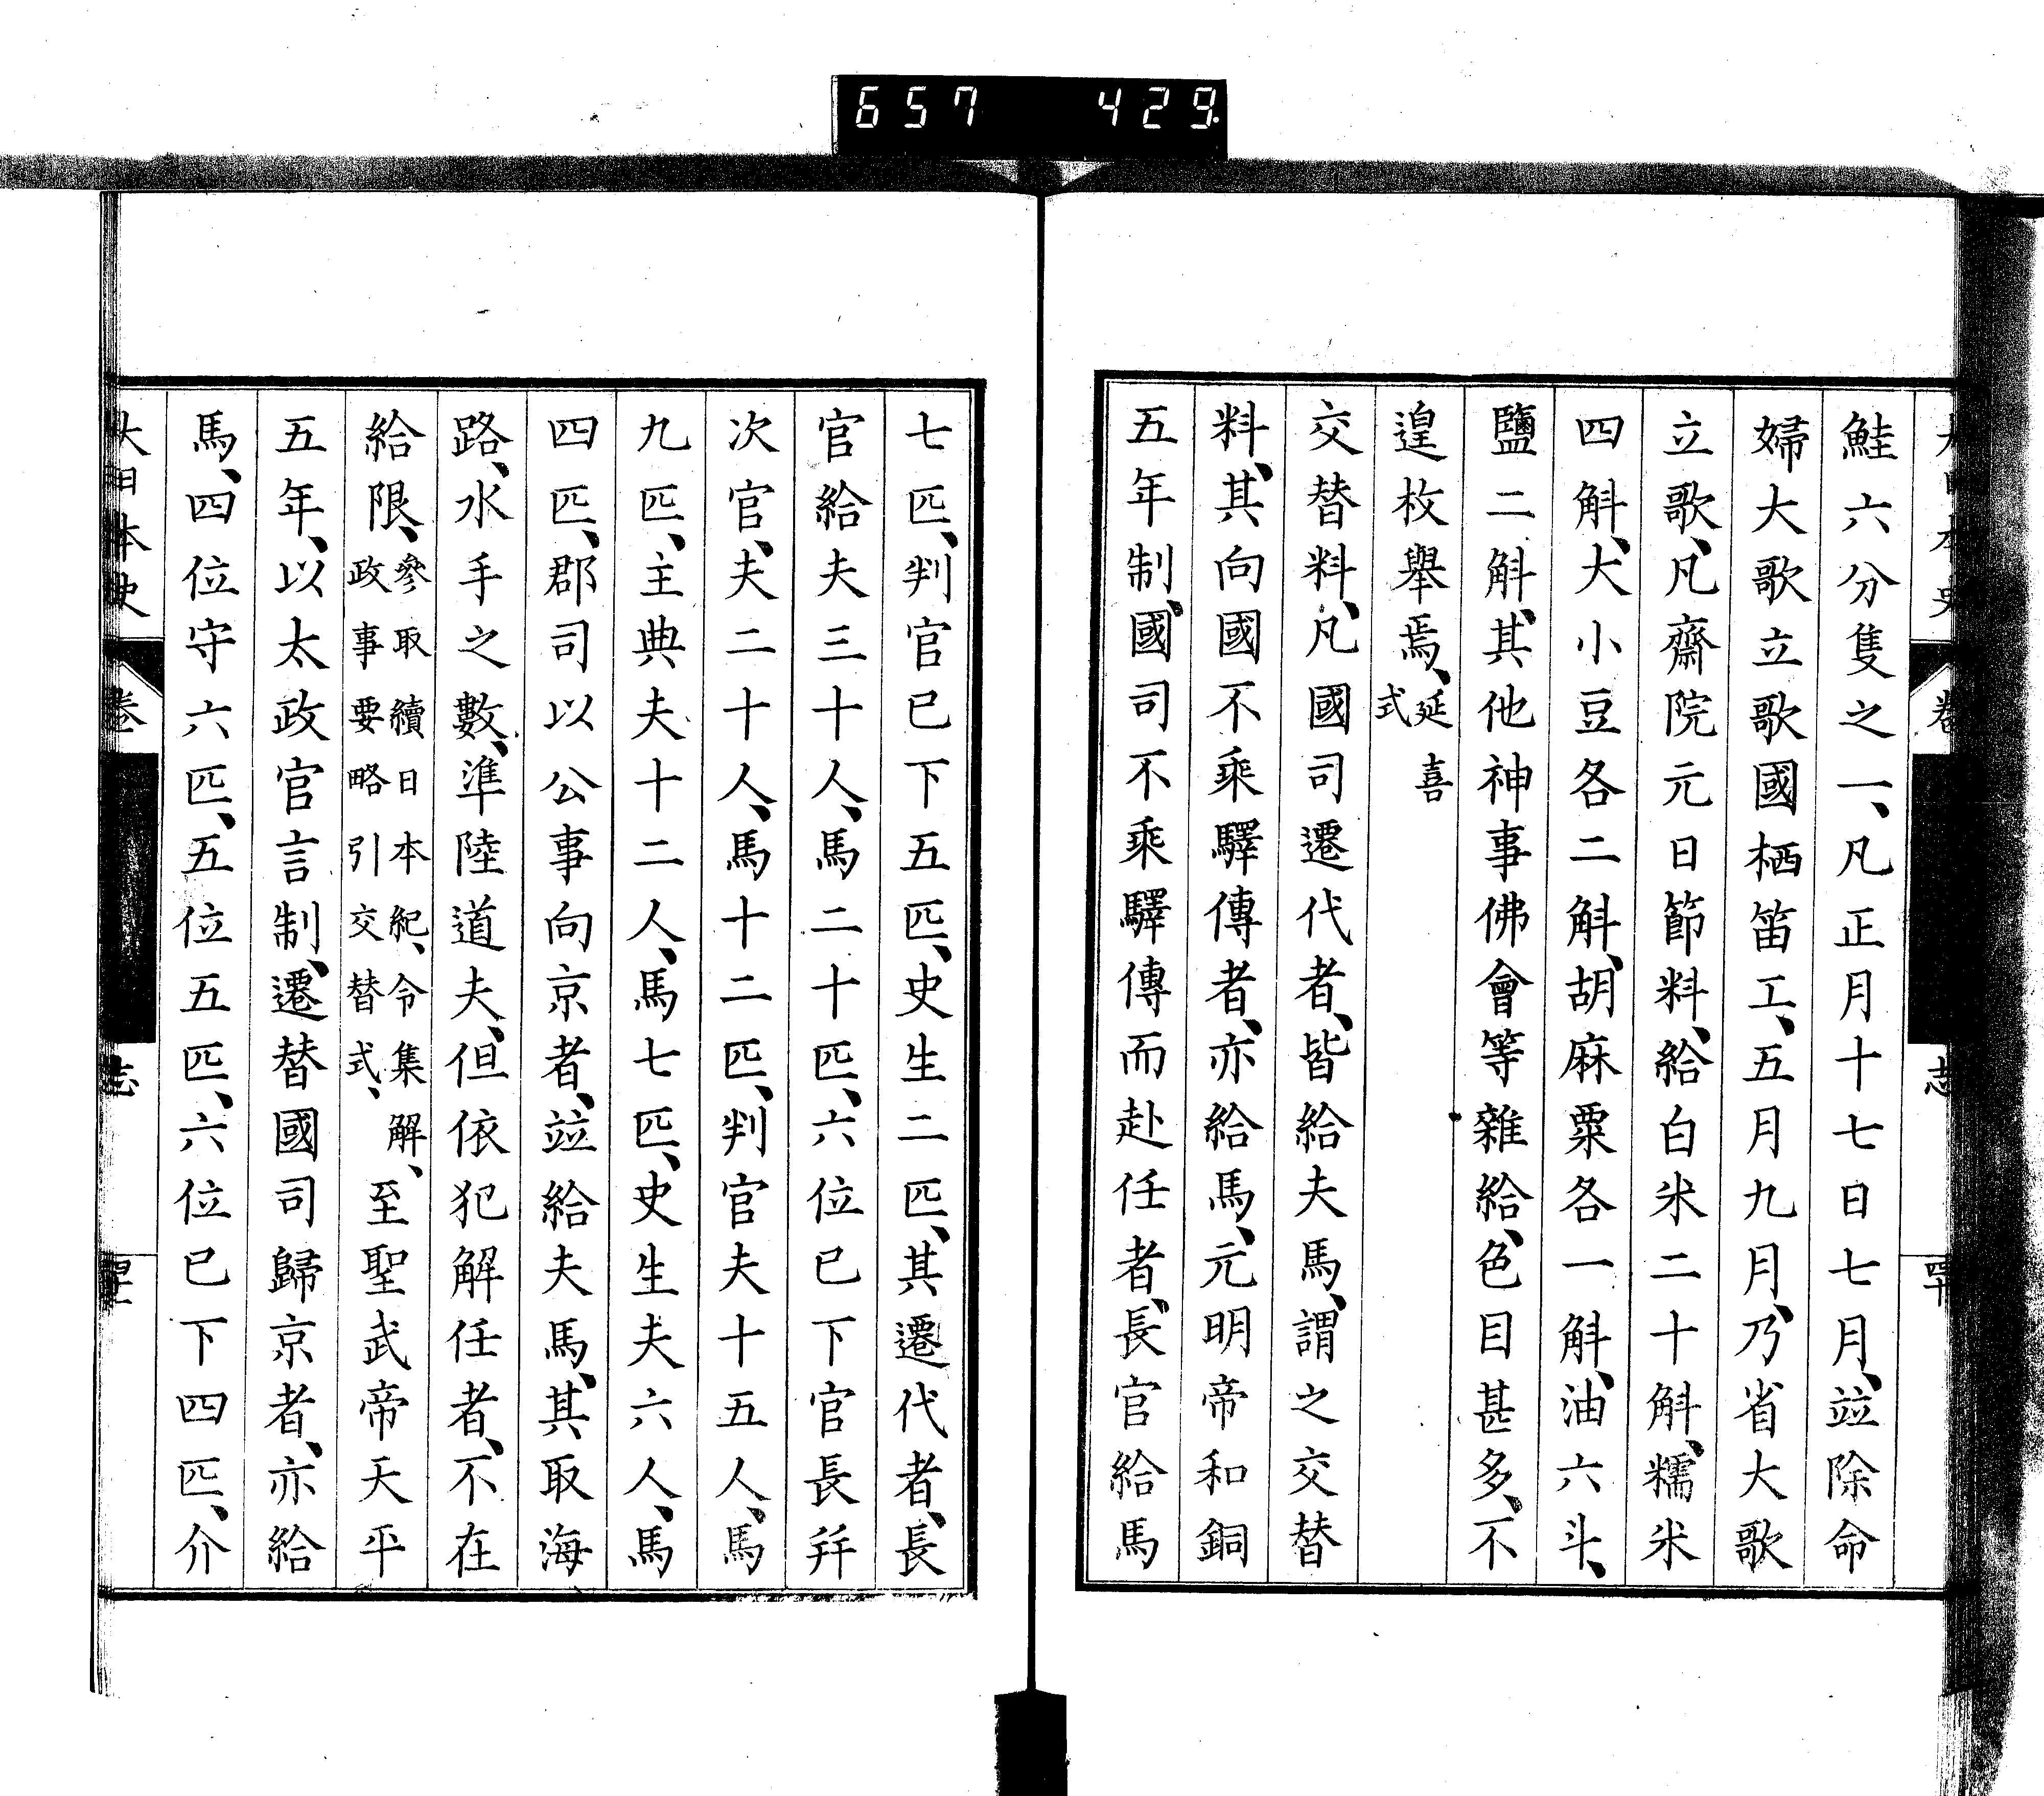 657 429
鮭六分隻之一、凡正月十七日七月、竝除命
婦大歌立歌國栖笛工、五月九月、乃省大歌
立歌、凡齋院元日節料、給白米二十斛、糯米
四斛、大小豆各二斛、胡麻粟各一斛、油六斗、
鹽二斛、其他神事佛會等雜給、色目甚多、不
遑枚舉焉、延喜式
交替料、凡國司遷代者、皆給夫馬、謂之交替
料、其向國不乘驛傳者、亦給馬、元明帝和銅
五年制、國司不乘驛傳而赴任者、長官給馬
七匹、判官已下五匹、史生二匹、其遷代者、長
官給夫三十人、馬二十匹、六位已下官長幷
次官、夫二十人、馬十二匹、判官夫十五人、馬
九匹、主典夫十二人、馬七匹、史生夫六人、馬
四匹、郡司以公事向京者、竝給夫馬、其取海
路、水手之數、準陸道夫、但依犯解任者、不在
給限、參取續日本紀、令集解、政事要略引交替式、至聖武帝天平
五年、以太政官言制、遷替國司歸京者、亦給
馬、四位守六匹、五位五匹、六位已下四匹、介
大日本史 卷 志